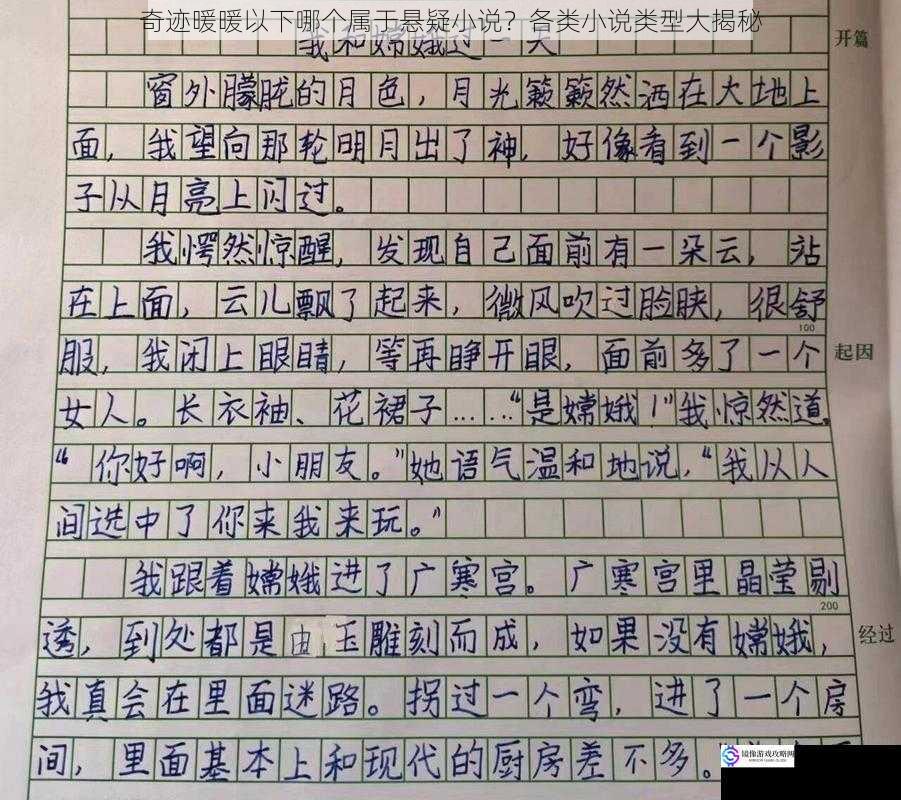 奇迹暖暖以下哪个属于悬疑小说？各类小说类型大揭秘
我和嫦娥过一天
开篇
窗外朦胧的月色，月光簌簌然洒在大地上
面，我望向那轮明月出了神，好像看到一个影
子从月亮上闪过。
我愕然惊醒，发现自己面前有一朵云，站
在上面，云儿飘了起来，微风吹过脸颊，很舒
100
服，我闭上眼睛，等再睁开眼，面前多了一个
起因
女人。长衣袖、花裙子……“是嫦娥！”我惊然道，
“你好啊，小朋友。”她语气温和地说，“我从人
间选中了你来我来玩。”
我跟着嫦娥进了广寒宫。广寒宫里晶莹剔
200
透，到处都是由玉雕刻而成，如果没有嫦娥，
经过
我真会在里面迷路。拐过一个弯，进了一个房
间，里面基本上和现代的厨房差不多。
镜像游戏攻略网